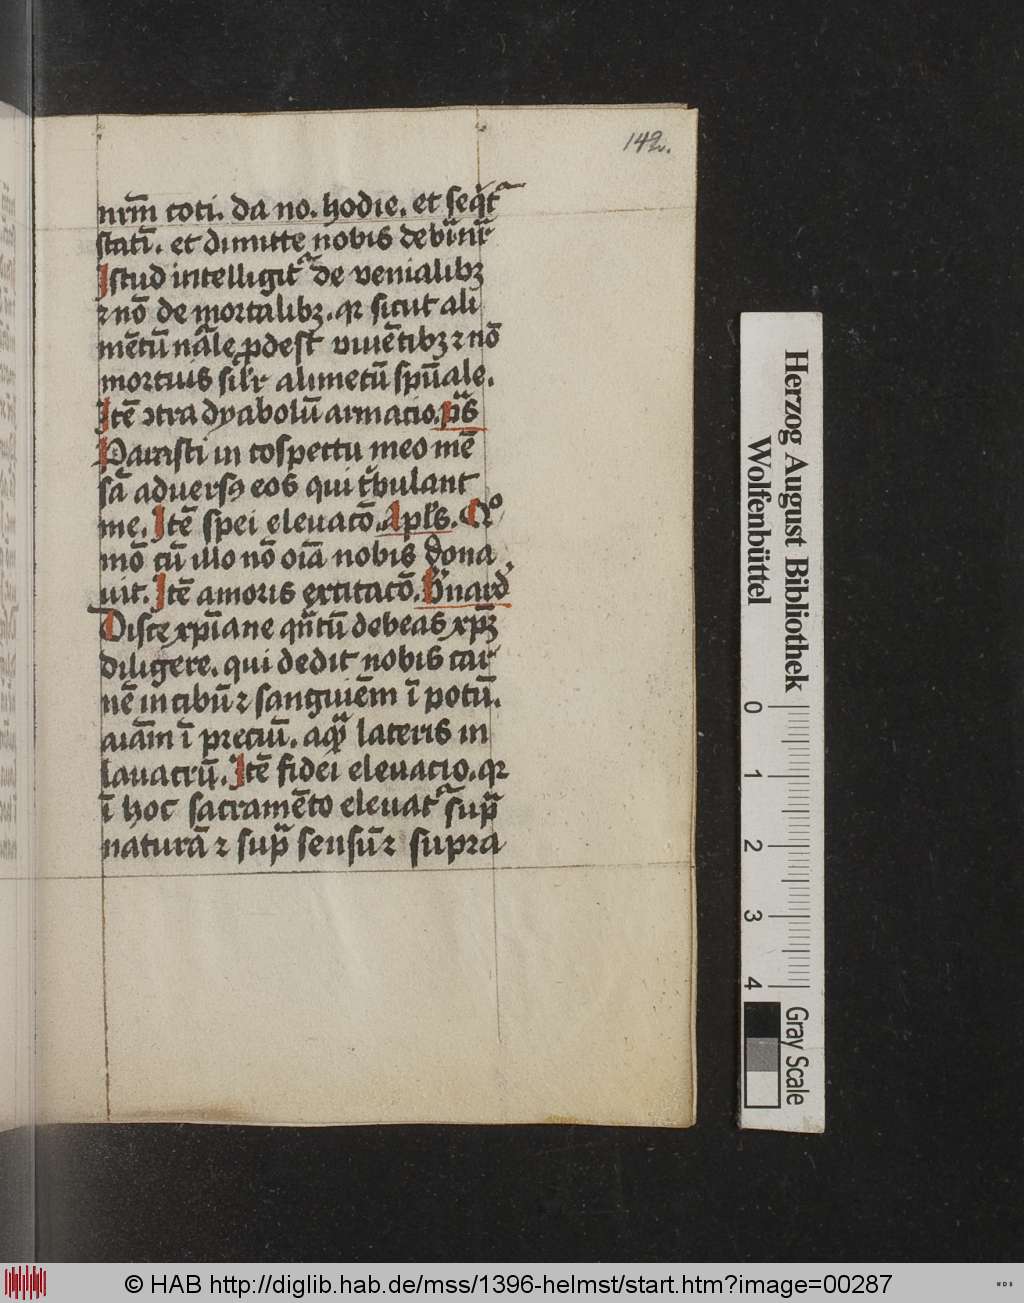 142.
nrm̄ coti. da no. hodie. et seqͥtᷓ
statī. et dimitte nobis debīnrᷓ
Istud intelligitᷓ de venialibꝫ
⁊ nō de mortalibꝫ. qꝛ sicut ali
mētū nāle ꝓdest viuētibꝫ ⁊ nō
mortuis silꝛ alimetū spūale.
Itē ꝯtra dyabolū armacio. pᷤs
Parasti in cōspectu meo mē
sā aduersꝰ eos qui tͥbulant
me. Itē spei eleuacō. Apls. Qͦ
mō cū illo nō oīa nobis dona
uit. Itē amoris excitacō. B̾nard
Disce xp̄iane qn̄tū debeas xp̄ꝫ
diligere. qui dedit nobis car
nē in cibū ⁊ sanguiēm ī potū.
aīam ī preciū. aqᷓ lateris in
lauacrū. Itē fidei eleuacio. qꝛ
ī hoc sacramēto eleuatᷓ supᷓ
naturā ⁊ supᷓ sensū ⁊ supra
Herzog August Bibliothek
Wolfenbüttel
0 1 2 3 4
Gray Scale
© HAB http://diglib.hab.de/mss/1396-helmst/start.htm?image=00287
WDB